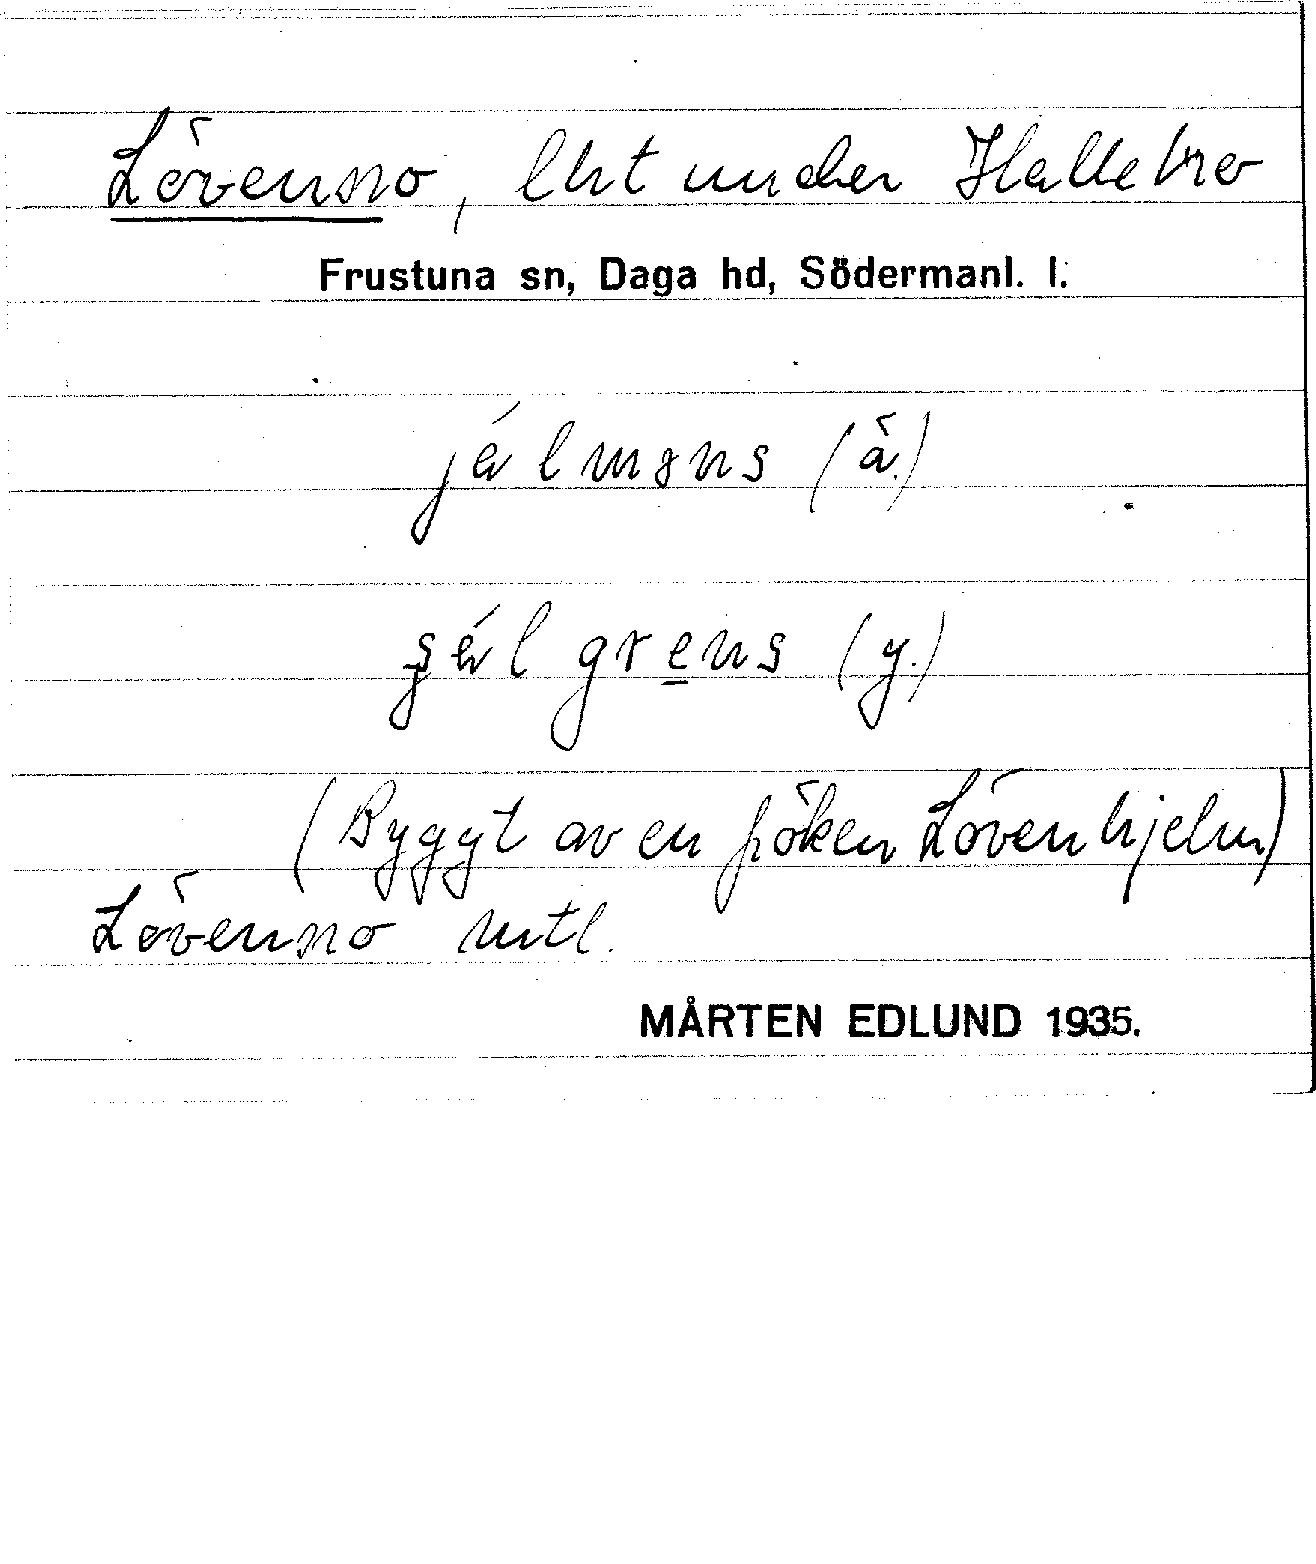 Lövenno, lht under Hallebro
Frustuna sn, Daga hd, Södermanl. l.
jälməns (ä.)
grens (y.)
(Byggt av en fröken Lövenhjelm)
Lövenno mtl.
MÅRTEN EDLUND 1935.